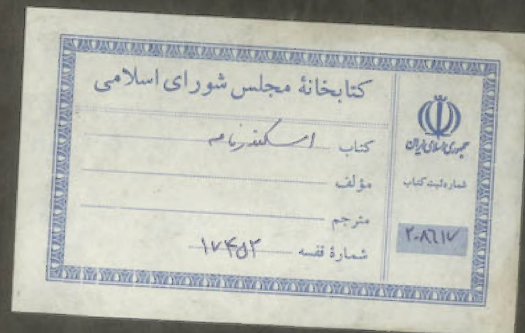 کتابخانهٔ مجلس شورای اسلامی
کتاب اسکندرنامه
مؤلف
مترجم
شمارهٔ قفسه ۱۷۴۵۲
جمهوری اسلامی ایران
شماره ثبت کتاب
۲۰۸۶۱۷